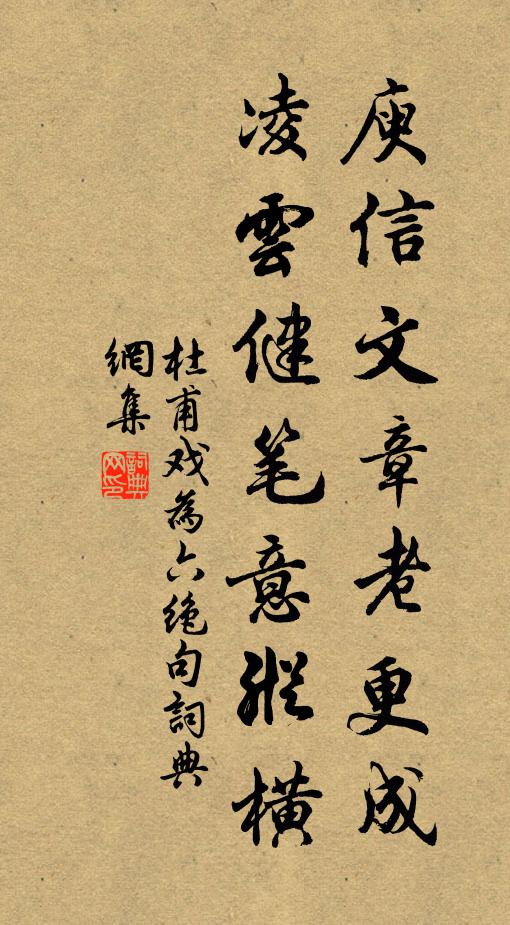 庾信文章老更成
凌雲健笔意縱橫
杜甫戏為六绝句詞典
網集
詞典网印